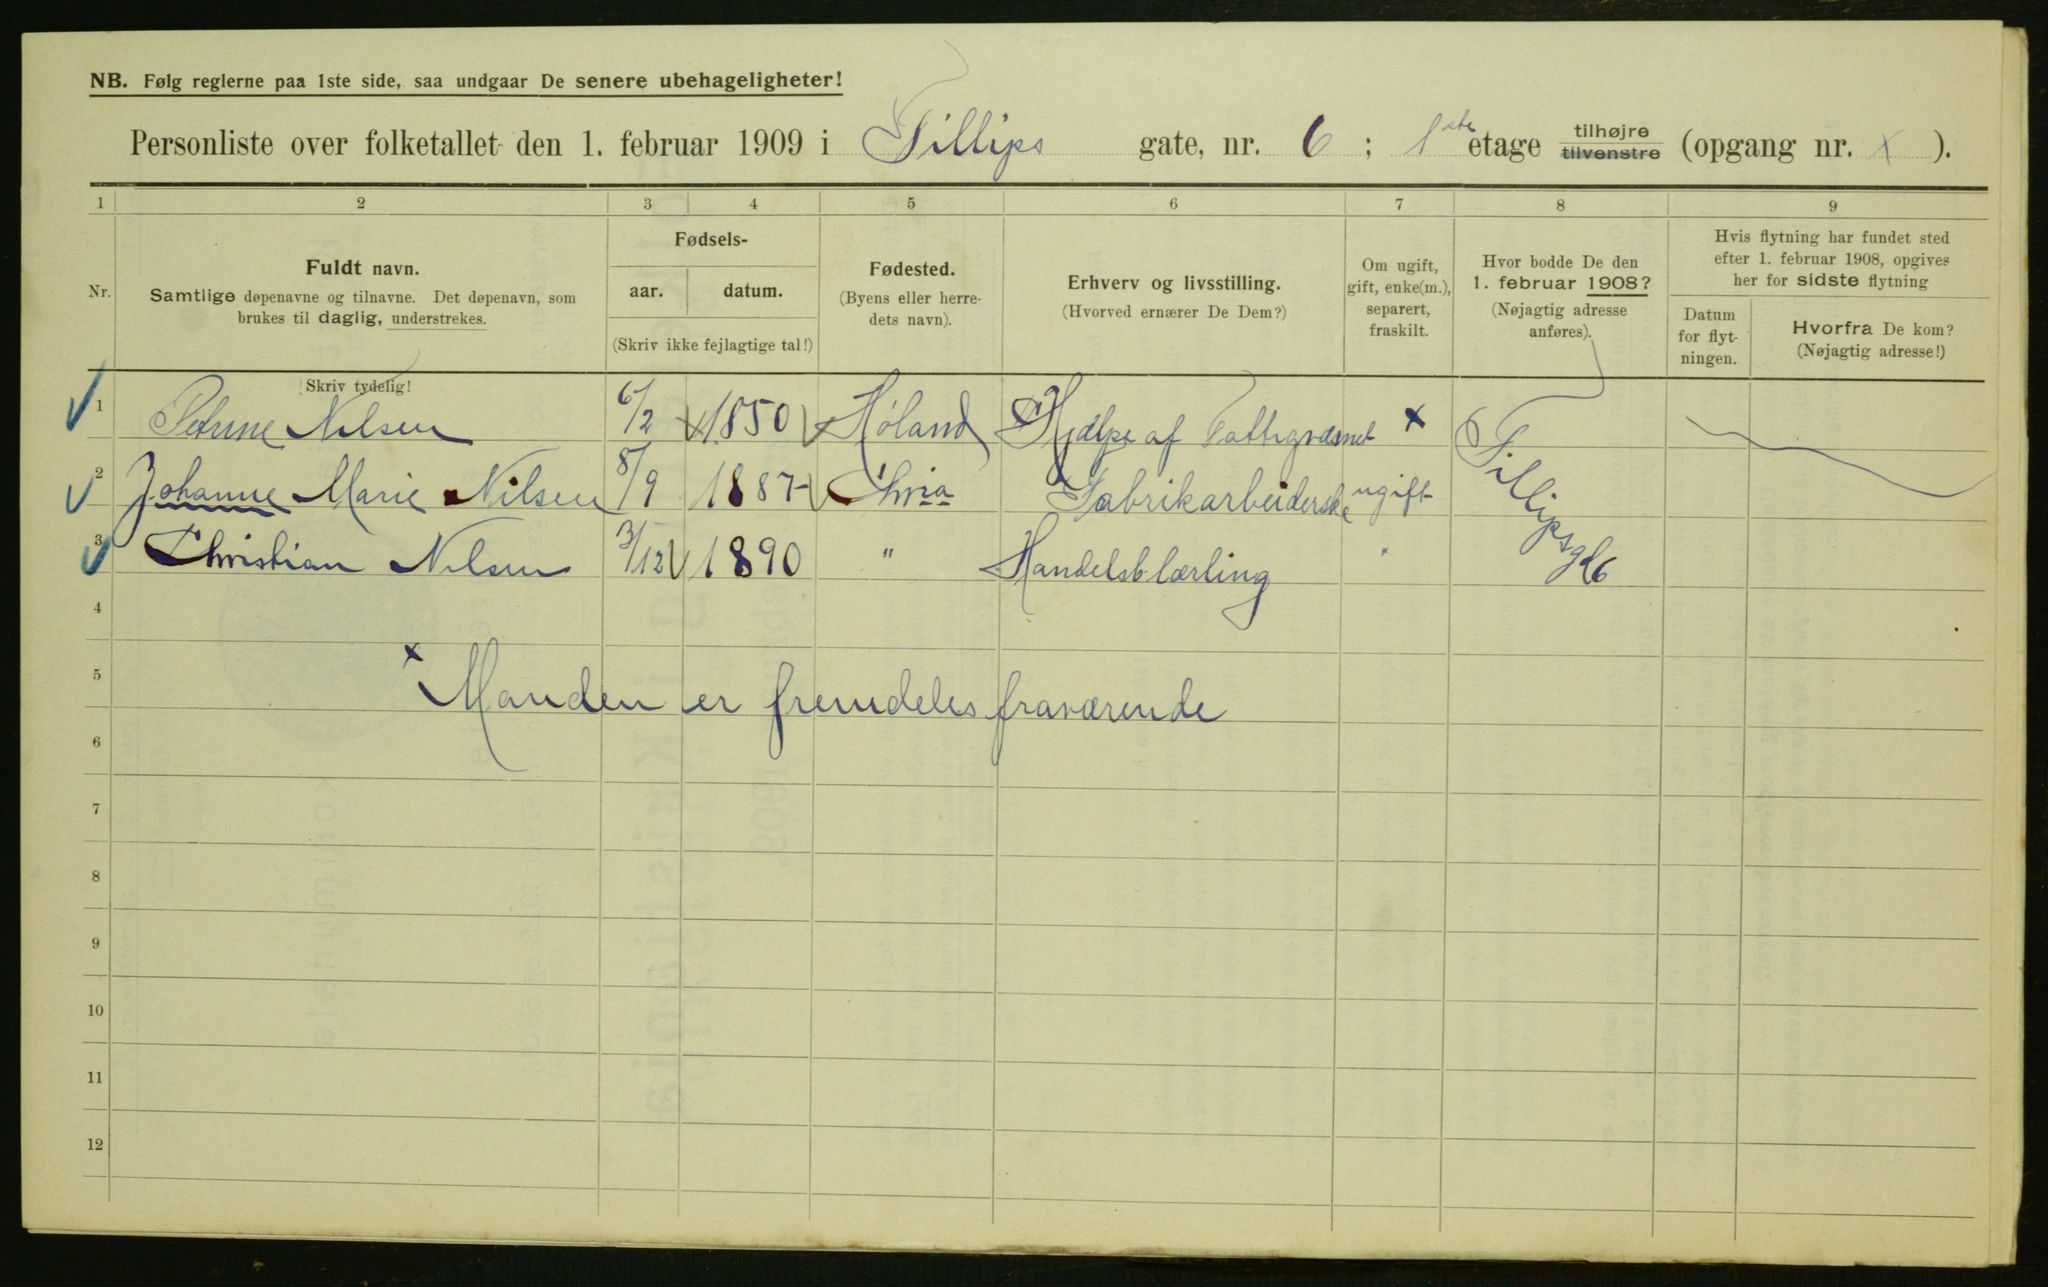 NB. Følg reglerne paa 1ste side, saa undgaar De senere ubehageligheter!
Personliste over folketallet den 1. februar 1909 i Fillips gate, nr. 6 ; 1ste etage tilhøjre tilvenstre (opgang nr. x ).
1 2 3 4 5 6 7 8 9
Nr.
Fuldt navn.
Samtlige døpenavne og tilnavne. Det døpenavn, som
brukes til daglig, understrekes.
Fødsels-
aar. datum.
(Skriv ikke fejlagtige tal!)
Fødested.
(Byens eller herre-
dets navn).
Erhverv og livsstilling.
(Hvorved ernærer De Dem?)
Om ugift,
gift, enke(m.),
separert,
fraskilt.
Hvor bodde De den
1. februar 1908?
(Nøjagtig adresse
anføres).
Hvis flytning har fundet sted
efter 1. februar 1908, opgives
her for sidste flytning
Datum
for flyt-
ningen.
Hvorfra De kom?
(Nøjagtig adresse!)
Skriv tydelig!
1 Petrine Nilsen 6/2 1850 Høland Hjælpe af Fattigvæsnet x
2 Johanne Marie Nilsen 8/9 1887 Chria Fabrikarbeiderske ugift
3 Christian Nilsen 3/12 1890 " Handelsblærling "
Fillipsgd 6
4
5 x Manden er fremdeles fraværende
6
7
8
9
10
11
12